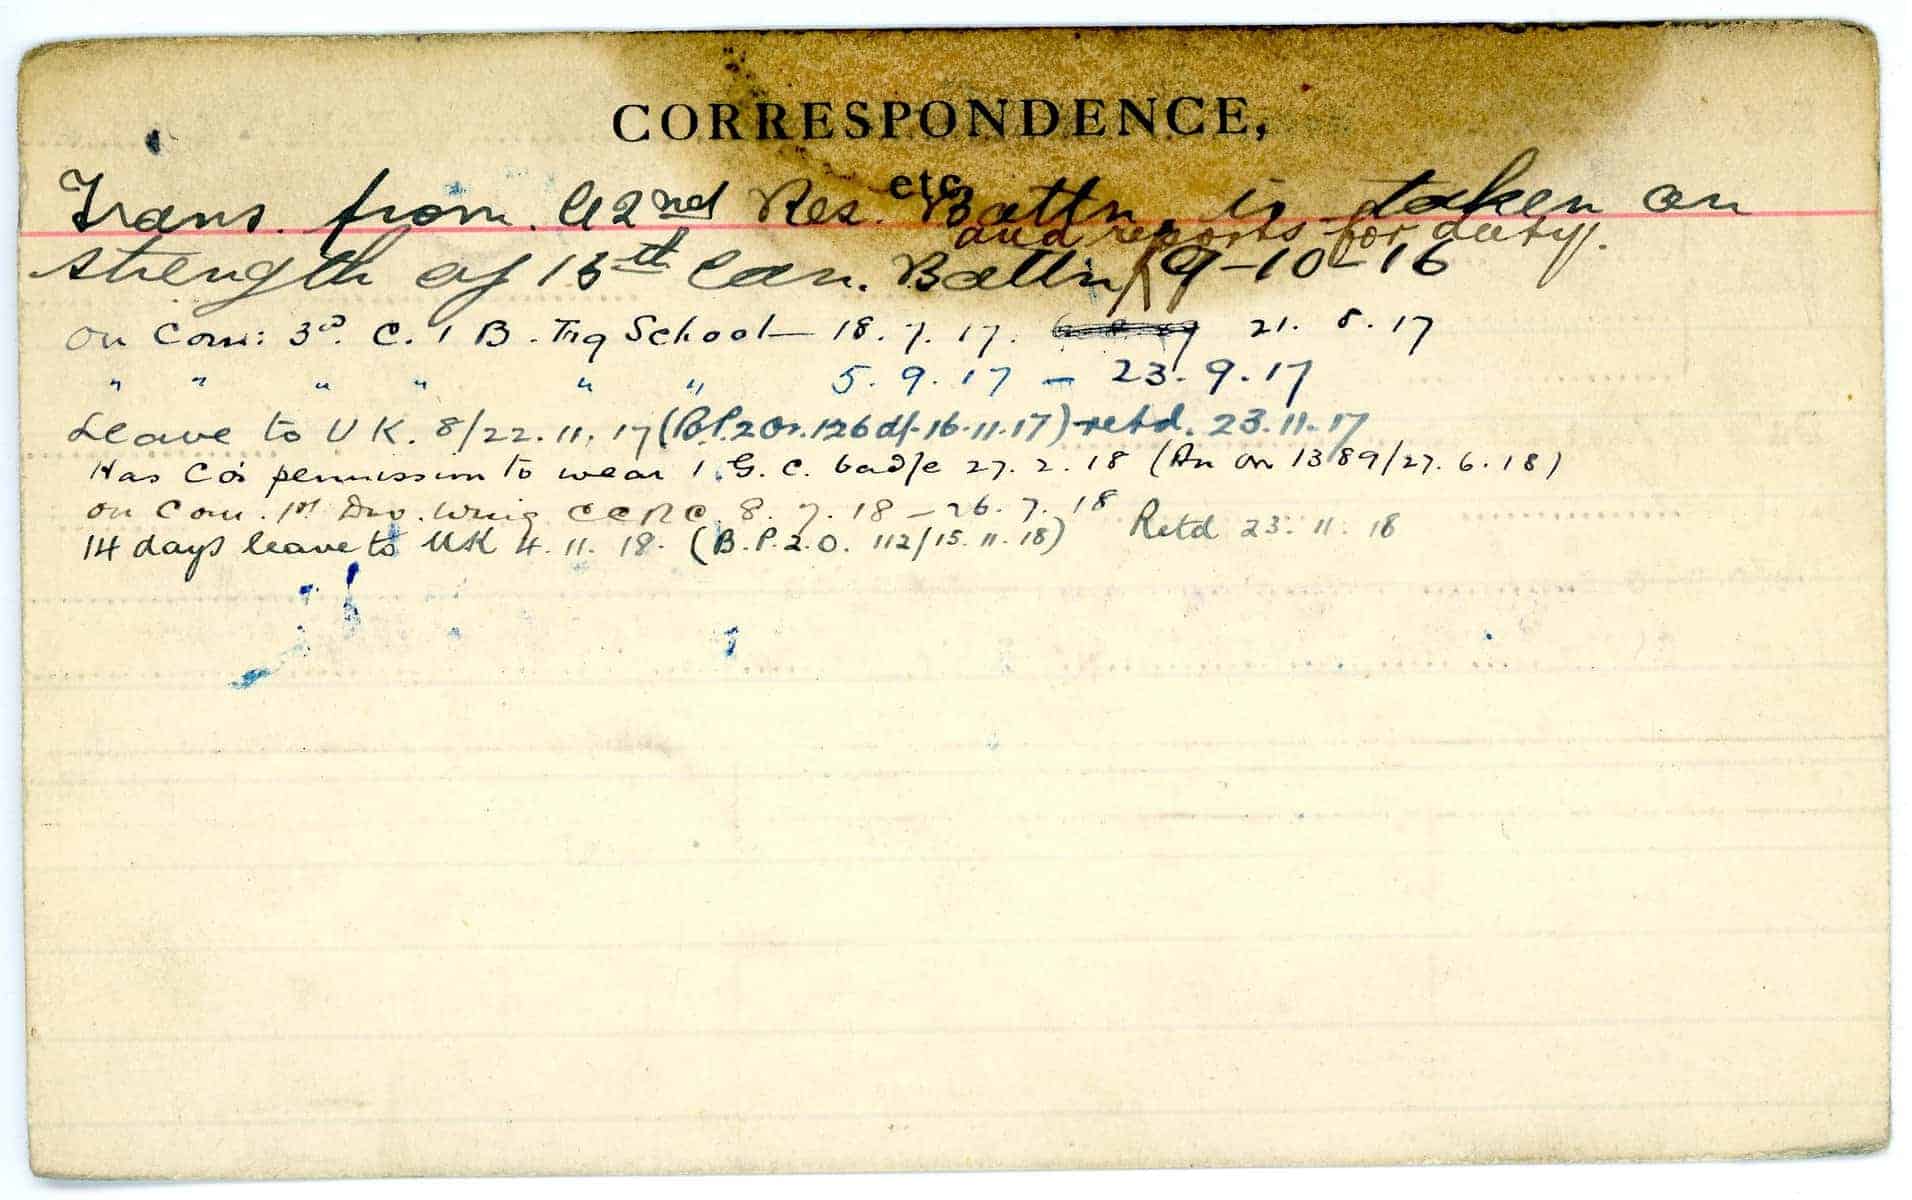 CORRESPONDENCE,
etc.
Trans. from 92nd Res. Battn, is taken on
and reports for duty.
strength of 13th Can. Battn, 9-10-16
on Com: 3rd. C. I B. Trg School — 18. 7. 17. 21. 8. 17
" " " " " " 5. 9. 17 — 23. 9. 17
Leave to UK. 8/22. 11. 17 (B.P.2 Or. 126 d/- 16.11.17) - retd. 23.11.17
Has Co's permission to wear 1 G. C. badge 27. 2. 18 ( on 1389/27. 6. 18)
on Com. 1st Div. Wing C C R C. 8. 7. 18 — 26. 7. 18
14 days leave to UK 4. 11. 18. (B. P. 2. O. 112/15. 11. 18) Retd 23. 11. 18